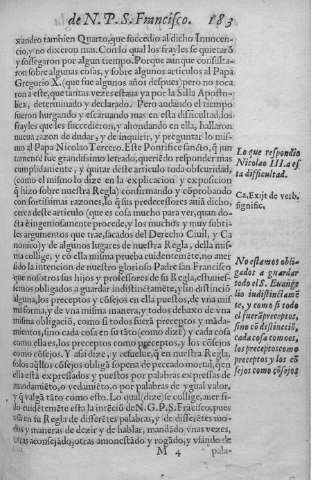 de N. P. S. Francisco. 183
xandro tambien Quarto, que succedio al dicho Innocen-
cio, y no dixeron mas. Con lo qual los frayles se quietarõ
y sossegaron por algun tiempo. Porque aunque consulta-
ron sobre algunas cosas, y sobre algunos articulos al Papa
Gregorio X. (que fue algunos años despues) pero no toca
ron a este, que tantas vezes estaua ya por la Silla Aposto-
lica, determinado y declarado. Pero andando el tiempo
fueron hurgando y escaruando mas en esta difficultad, los
frayles que les succedieron, y ahondando en ella, hallaron
nueua razon de dudar, y de inquirir, y preguntar lo mis-
mo al Papa Nicolao Tercero. Este Pontifice sancto, q̃ jun
tamente fue grandissimo letrado, queriẽdo responder mas
cumplidamente, y quitar deste articulo toda obscuridad,
(como el mismo lo dize en la explicacion y exposicion
q̃ hizo sobre nuestra Regla) confirmando y cõprobando
con fortissimas razones, lo q̃ sus predecessores auiã dicho
cerca deste articulo (que es cosa mucho para ver, quan do-
cta è ingeniosamente procede, y los muchos y muy subti-
les argumentos que trae, sacados del Derecho Ciuil, y Ca
nonico) y de algunos lugares de nuestra Regla, della mis-
ma collige, y cõ ella misma prueua euidentemẽte, no auer
sido la intencion de nuestro glorioso Padre san Francisco
que nosotros sus hijos y professores de su Regla, estuuies-
semos obligados a guardar indistinctamẽte, y sin distinciõ
alguna, los preceptos y cõsejos en ella puestos, de vna mis
ma forma, y de vna misma manera, y todos debaxo de vna
misma obligaciõ, como si todos fuerã preceptos y mãda-
mientos, sino cada cosa en su tãto (como dizẽ) y cada cosa
como ella es, los preceptos como preceptos, y los cõsejos
como cõsejos. Y assi dize, y resuelue, q̃ en nuestra Regla,
solos aq̃llos cõsejos obligã so pena de peccado mortal, q̃ en
ella está expressados y puestos por palabras expressas de
mandamiẽto, o vedamiẽto, o por palabras de ygual valor,
y q̃ valgã tãto como esto. Lo qual (dize) se collige, auer si-
do euidẽtemẽte esta la intẽciõ de N. G. P. S. Frãcisco, pues
vsò en su Regla de differẽtes palabras, y de differẽtes mo-
dos y maneras de dezir y de hablar, mandãdo vnas vezes,
otras aconsejãdo, otras amonestãdo y rogãdo, y vsando de
M 4 pala-
Lo que respondio
Nicolao III. a es
ta difficultad.
Ca. Exijt de verb.
signific.
No estamos obli-
gados a guardar
todo el S. Euange
lio indistinctamẽ
te, y como si todo
el fuera preceptos,
sino cõ distinciõ,
cada cosa como es,
los preceptos como
preceptos y los cõ
sejos como cõsejos